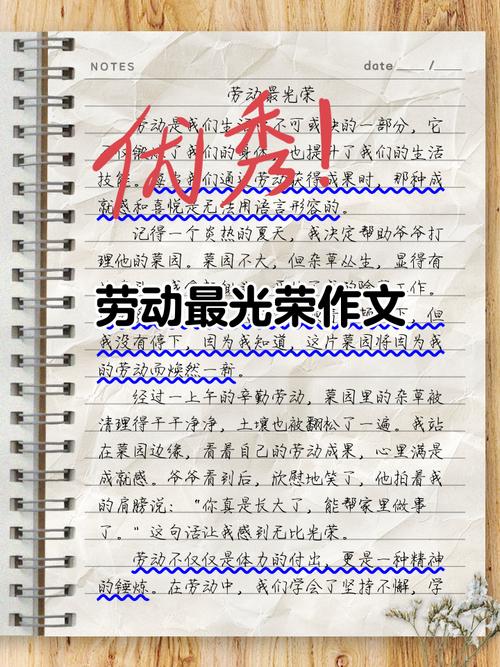 NOTES
date /
劳动最光荣
优秀!
劳动是我们生活 不可或缺的一部分，它
了我们的身体，也提升了我们的生活
技能。 我们通过劳动获得成果时，那种成
就感和喜悦是无法用语言形容的。
记得一个炎热的夏天，我决定帮助爷爷打
理他的菜园。菜园不大，但杂草丛生，显得有
工作。
劳动最光荣作文
下，但
我没有停下，因为我知道，这片菜园将因为我
的劳动而焕然一新。
经过一上午的辛勤劳动，菜园里的杂草被
清理得干干净净，土壤也被翻松了一遍。我站
在菜园边缘，看着自己的劳动成果，心里满是
成就感。爷爷看到后，欣慰地笑了，他拍着我
的肩膀说：“你真是长大了，能帮家里做事
了。”这句话让我感到无比光荣。
劳动不仅仅是体力的付出，更是一种精神
的锤炼。在劳动中，我们学会了坚持不懈，学